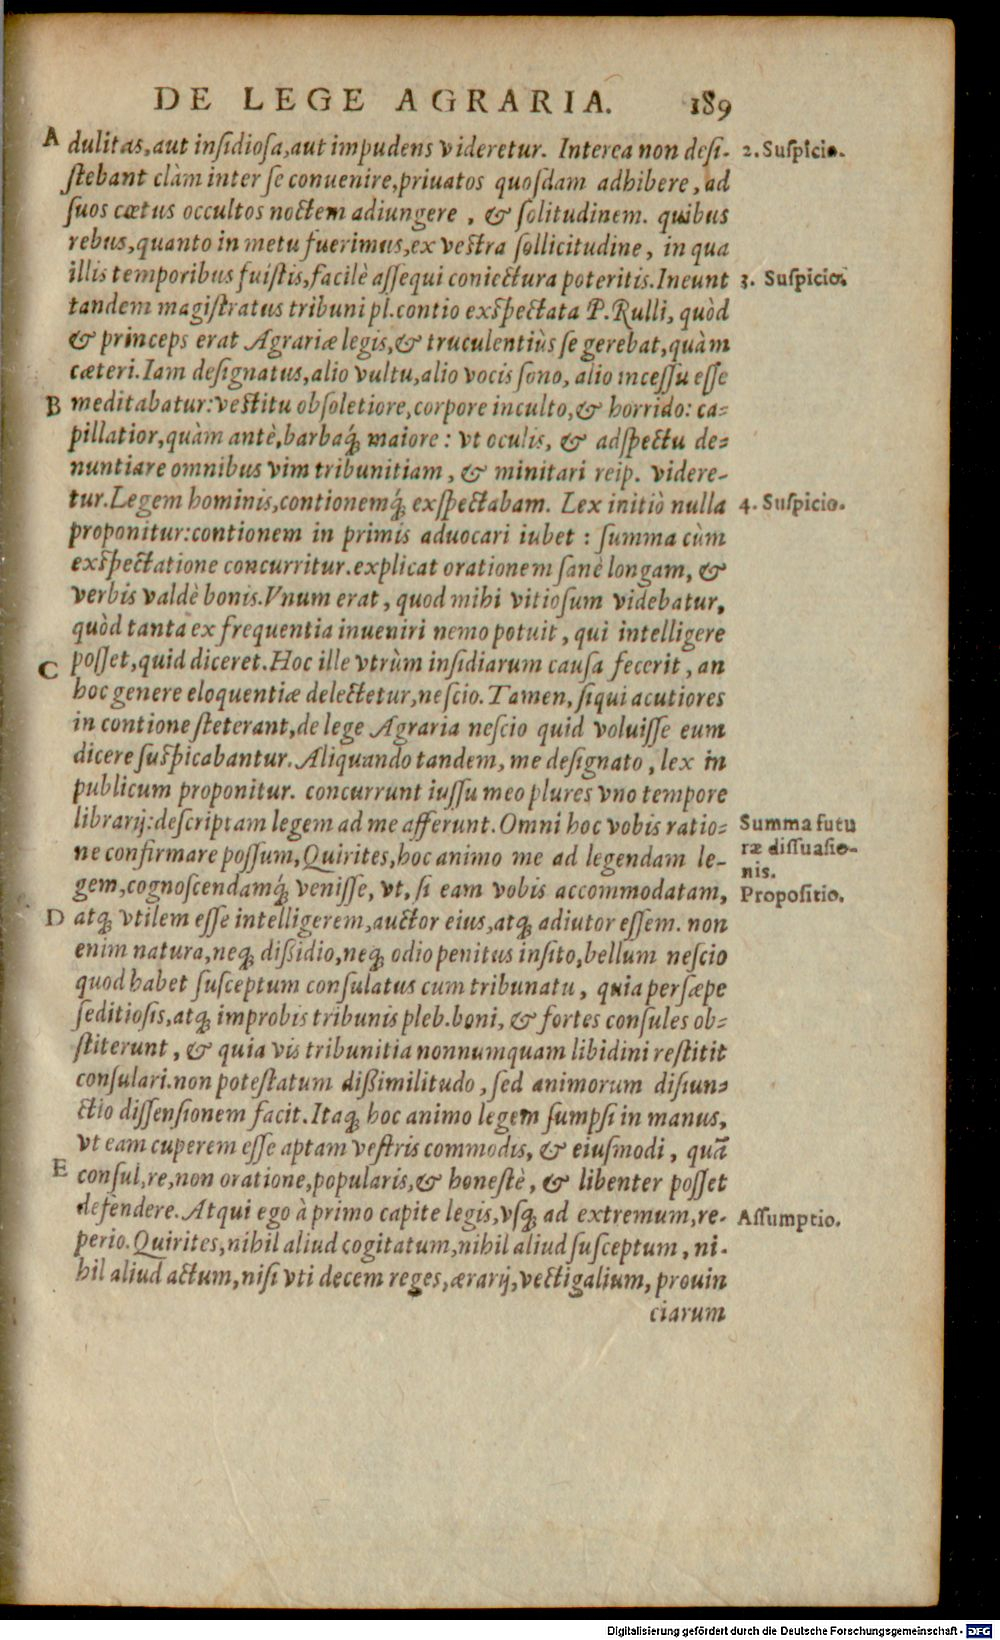 DE LEGE AGRARIA. 189
A dulitas, aut insidiosa, aut impudens videretur. Interea non desi- 2. Suspicio.
stebant clàm inter se conuenire, priuatos quosdam adhibere, ad
suos cœtus occultos noctem adiungere, & solitudinem. quibus
rebus, quanto in metu fuerimus, ex vestra sollicitudine, in qua
illis temporibus fuistis, facilè assequi coniectura poteritis. Ineunt 3. Suspicio.
tandem magistratus tribuni pl. contio exspectata P. Rulli, quòd
& princeps erat Agrariæ legis, & truculentiùs se gerebat, quàm
cæteri. Iam designatus, alio vultu, alio vocis sono, alio incessu esse
B meditabatur: vestitu obsoletiore, corpore inculto, & horrido: ca-
pillatior, quàm antè, barbaq́; maiore: vt oculis, & adspectu de-
nuntiare omnibus vim tribunitiam, & minitari reip. videre-
tur. Legem hominis, contionemq́; exspectabam. Lex initiò nulla 4. Suspicio.
proponitur: contionem in primis aduocari iubet: summa cùm
exspectatione concurritur. explicat orationem sanè longam, &
verbis valdè bonis. Vnum erat, quod mihi vitiosum videbatur,
quòd tanta ex frequentia inueniri nemo potuit, qui intelligere
C posset, quid diceret. Hoc ille vtrùm insidiarum causa fecerit, an
hoc genere eloquentiæ delectetur, nescio. Tamen, siqui acutiores
in contione steterant, de lege Agraria nescio quid voluisse eum
dicere suspicabantur. Aliquando tandem, me designato, lex in
publicum proponitur. concurrunt iussu meo plures vno tempore
librarij: descriptam legem ad me afferunt. Omni hoc vobis ratio- Summa futu
ne confirmare possum, Quirites, hoc animo me ad legendam le- ræ dissuasio-
nis.
gem, cognoscendamq́; venisse, vt, si eam vobis accommodatam, Propositio.
D atq; vtilem esse intelligerem, auctor eius, atq; adiutor essem. non
enim natura, neq; dißidio, neq; odio penitus insito, bellum nescio
quod habet susceptum consulatus cum tribunatu, quia persæpe
seditiosis, atq; improbis tribunis pleb. boni, & fortes consules ob-
stiterunt, & quia vis tribunitia nonnumquam libidini restitit
consulari. non potestatum dißimilitudo, sed animorum disiun-
ctio dissensionem facit. Itaq; hoc animo legem sumpsi in manus,
vt eam cuperem esse aptam vestris commodis, & eiusmodi, quā
E consul, re, non oratione, popularis, & honestè, & libenter posset
defendere. Atqui ego à primo capite legis, vsq; ad extremum, re- Assumptio.
perio. Quirites, nihil aliud cogitatum, nihil aliud susceptum, ni-
hil aliud actum, nisi vti decem reges, ærarij, vectigalium, prouin
ciarum
Digitalisierung gefördert durch die Deutsche Forschungsgemeinschaft - DFG